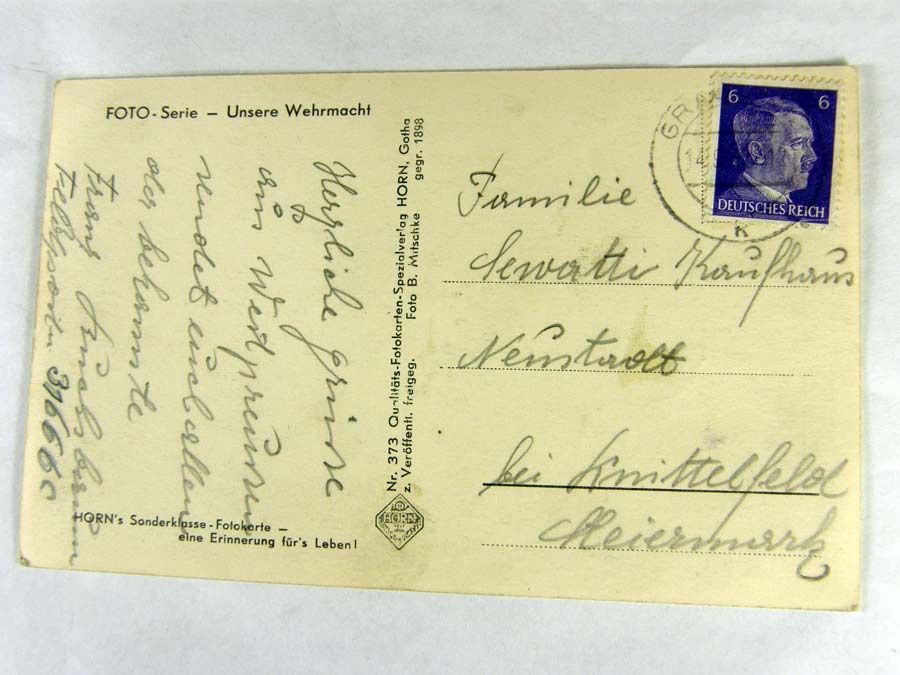 FOTO - Serie – Unsere Wehrmacht
Herzliche grüsse
aus Westpreussen
sendet euch allen
der bekannte
Franz
Feldpostn 37666 C
HORN's Sonderklasse - Fotokarte –
eine Erinnerung für's Leben!
Nr. 373 Qualitäts-Fotokarten-Spezialverlag HORN, Gotha
z. Veröffentl. freigeg. Foto B. Mitschke gegr. 1898
HORN
6 6
DEUTSCHES REICH
k
Familie
Sewatti Kaufhaus
Neustadt
bei Knittelfeld
Steiermark